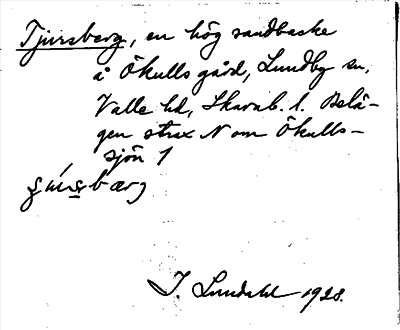 Tjursberg, en hög sandbacke
å Ökulls gård, Lundby sn,
Valle hd, Skarab. l. Belä-
gen strax N om Ökulls-
sjön
bærg
I. Lundahl 1928.